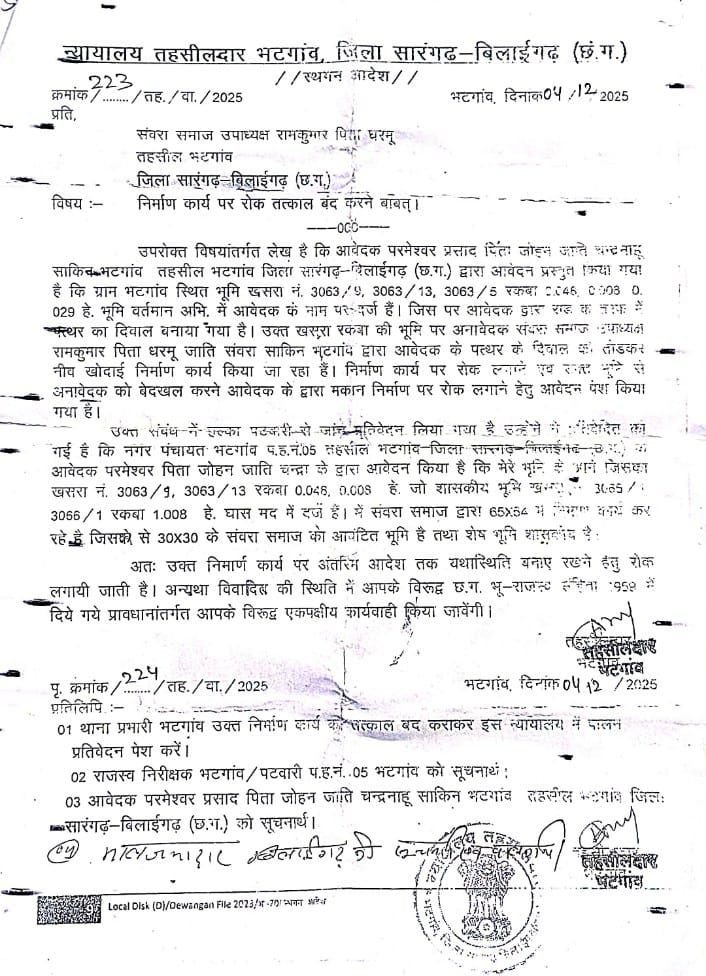 न्यायालय तहसीलदार भटगांव, जिला सारंगढ़–बिलाईगढ़ (छ.ग.)
//स्थगन आदेश//
क्रमांक/223/तह./वा./2025 भटगांव, दिनांक 04/12/2025
प्रति,
संवरा समाज उपाध्यक्ष रामकुमार पिता धरमू
तहसील भटगांव
जिला सारंगढ़–बिलाईगढ़ (छ.ग.)
विषय :– निर्माण कार्य पर रोक तत्काल बंद करने बाबत्।
––00––
उपरोक्त विषयांतर्गत लेख है कि आवेदक परमेश्वर प्रसाद पिता जोहन जाति चन्द्रनाहू
साकिन भटगांव तहसील भटगांव जिला सारंगढ़–बिलाईगढ़ (छ.ग.) द्वारा आवेदन प्रस्तुत किया गया
है कि ग्राम भटगांव स्थित भूमि खसरा नं. 3063/9, 3063/13, 3063/5 रकबा 0.046, 0.008 0.
029 हे. भूमि वर्तमान अभि. में आवेदक के नाम पर दर्ज हैं। जिस पर आवेदक द्वारा के में
पत्थर का दिवाल बनाया गया है। उक्त खसरा रकबा की भूमि पर अनावेदक संवरा समाज उपाध्यक्ष
रामकुमार पिता धरमू जाति संवरा साकिन भटगांव द्वारा आवेदक के पत्थर के दिवाल को तोडकर
नीव खोदाई निर्माण कार्य किया जा रहा हैं। निर्माण कार्य पर रोक लगाने एवं उक्त भूमि से
अनावेदक को बेदखल करने आवेदक के द्वारा मकान निर्माण पर रोक लगाने हेतु आवेदन पेश किया
गया है।
उक्त संबंध में हल्का पटवारी से जांच प्रतिवेदन लिया गया है उन्होने प्रतिवेदित
गई है कि नगर पंचायत भटगांव प.ह.नं.05 तहसील भटगांव–जिला सारंगढ़–बिलाईगढ़ (छ.ग.) के
आवेदक परमेश्वर पिता जोहन जाति चन्द्रा के द्वारा आवेदन किया है कि मेरे भूमि के आगे जिसका
खसरा नं. 3063/9, 3063/13 रकबा 0.046, 0.008 हे. जो शासकीय भूमि 3065/1
3066/1 रकबा 1.008 हे. घास मद में दर्ज हैं। में संवरा समाज द्वारा 65X54 में निर्माण कार्य कर
रहे है जिसको से 30X30 के संवरा समाज को आवंटित भूमि है तथा शेष भूमि शासकीय है।
अतः उक्त निर्माण कार्य पर अंतरिम आदेश तक यथास्थिति बनाए रखने हेतु रोक
लगायी जाती है। अन्यथा विवादित की स्थिति में आपके विरूद्व छ.ग. भू–राजस्व संहिता 1959 में
दिये गये प्रावधानांतर्गत आपके विरूद्व एकपक्षीय कार्यवाही किया जावेंगी।
तहसीलदार
भटगांव
पृ. क्रमांक/224/तह./वा./2025 भटगांव, दिनांक 04/12/2025
प्रतिलिपि :–
01 थाना प्रभारी भटगांव उक्त निर्माण कार्य को तत्काल बंद कराकर इस न्यायालय में पालन
प्रतिवेदन पेश करें।
02 राजस्व निरीक्षक भटगांव/पटवारी प.ह.नं. 05 भटगांव को सूचनार्थ।
03 आवेदक परमेश्वर प्रसाद पिता जोहन जाति चन्द्रनाहू साकिन भटगांव तहसील भटगांव जिला
सारंगढ़–बिलाईगढ़ (छ.ग.) को सूचनार्थ।
बिलाईगढ़ को
तहसीलदार
भटगांव
Local Disk (D)/Dewangan File 2023/अ-70/स्थगन आदेश